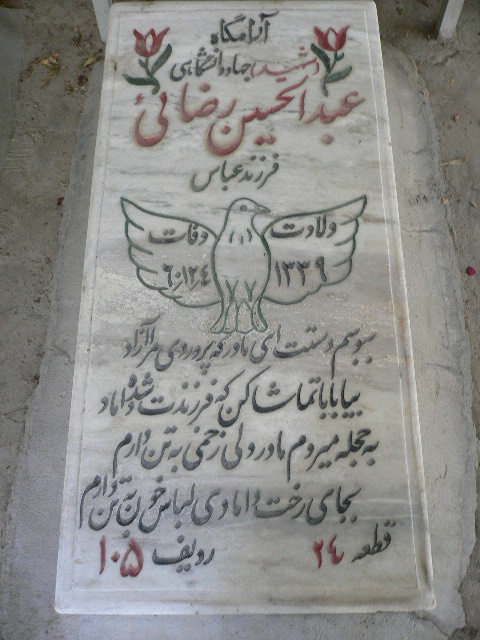 آرامگاه
(شهید) جهاد دانشگاهی
عبدالحسین رضائی
فرزند عباس
ولادت وفات
۱۳۳۹ ۶۰/۱۲/۴
ببوسم دستت ای مادر که پروردی مرا آزاد
بیا بابا تماشا کن که فرزندت شده داماد
به حجله میروم مادر ولی زخمی به تن دارم
بجای رخت دامادی لباس خون به تن دارم
قطعه ۲۴ ردیف ۱۰۵